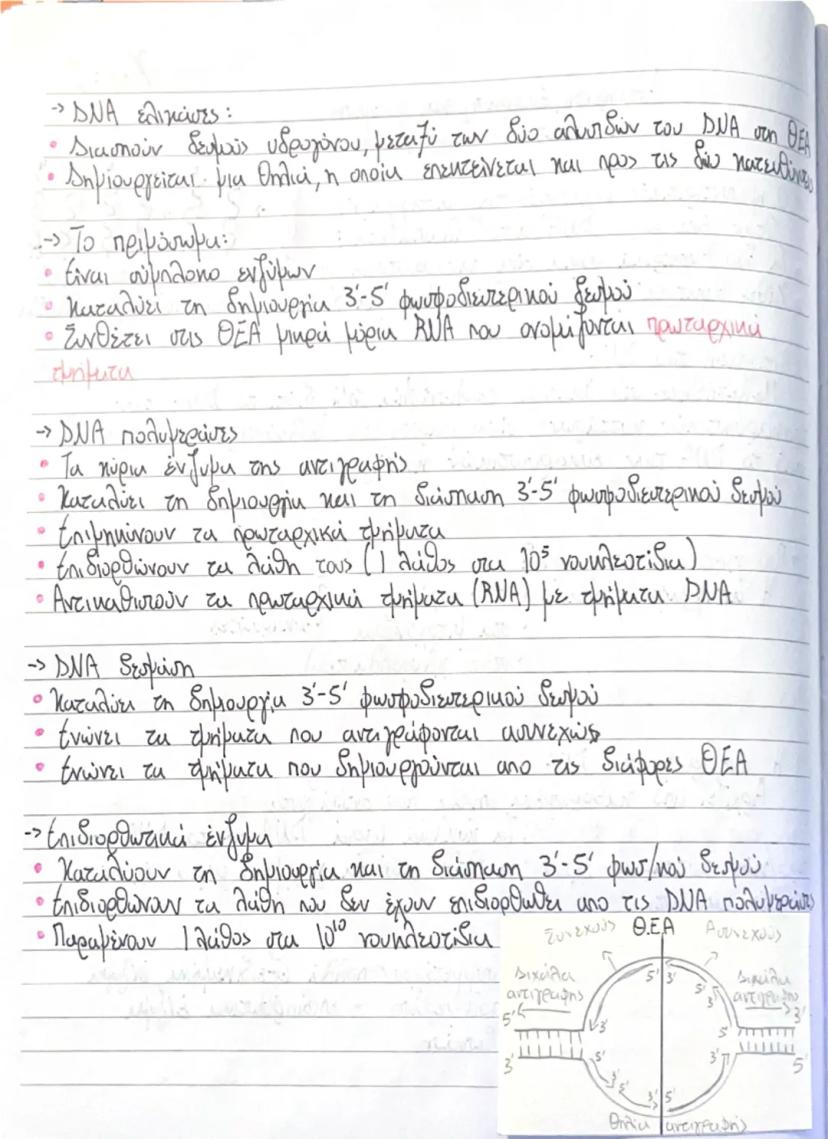 → DNA ελικάσες:
• Διασπούν δεσμούς υδρογόνου, μεταξύ των δύο αλυσιδών του DNA στη ΘΕΑ
• Δημιουργείται μια θηλιά, η οποία επεκτείνεται και προς τις δύο κατευθύνσεις
→ Το πριμόσωμα:
• Είναι σύμπλοκο ενζύμων
• Καταλύει τη δημιουργία 3'-5' φωσφοδιεστερικού δεσμού
• Συνθέτει στις ΘΕΑ μικρά μόρια RNA που ονομάζονται πρωταρχικά
τμήματα
→ DNA πολυμεράσες
• Τα κύρια ένζυμα της αντιγραφής
• Καταλύει τη δημιουργία και τη διάσπαση 3'-5' φωσφοδιεστερικού δεσμού
• Επιμηκύνουν τα πρωταρχικά τμήματα
• Επιδιορθώνουν τα λάθη τους (1 λάθος στα 10⁵ νουκλεοτίδια)
• Αντικαθιστούν τα πρωταρχικά τμήματα (RNA) με τμήματα DNA
→ DNA δεσμάση
• Καταλύει τη δημιουργία 3'-5' φωσφοδιεστερικού δεσμού
• Ενώνει τα τμήματα που αντιγράφονται ασυνεχώς
• Ενώνει τα τμήματα που δημιουργούνται απο τις διάφορες ΘΕΑ
→ Επιδιορθωτικά ένζυμα
• Καταλύουν τη δημιουργία και τη διάσπαση 3'-5' φωσ/κού δεσμού
• Επιδιορθώνουν τα λάθη που δεν έχουν επιδιορθωθεί απο τις DNA πολυμεράσες
• Παραμένουν 1 λάθος στα 10¹⁰ νουκλεοτίδια
Συνεχούς Θ.Ε.Α Ασυνεχούς
Διχάλα αντιγραφής
Διχάλα αντιγραφής
5' 3'
5' 3' 5' 3' 5' 3'
3' 5' 3' 5' 3' 5' 3' 5'
Θηλιά αντιγραφής